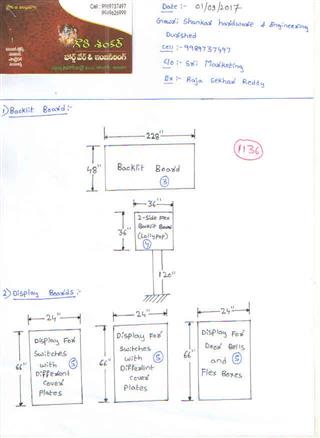 Cell : 9989737497
9949626999
గౌరి శంకర్
హార్డ్ వేర్ & ఇంజనీరింగ్
Date :- 01/09/2017
Gowri Shankar hardware & Engineering
Cell :- 9989737497
C/o :- Sri Marketing
Ex :- Raja Sekhar Reddy
1) Backlit Board :-
228"
48"
Backlit Board
3
1136
36"
36"
2-Side Flex
Backlit Board
(Lollypop)
4
120"
2) Display Boards :-
24"
66"
Display For
Switches
with 5
Different
Cover
Plates
24"
66"
Display For
Switches
with 5
Different
Cover
Plates
24"
66"
Display For
Door Bells
and 5
Flex Boxes